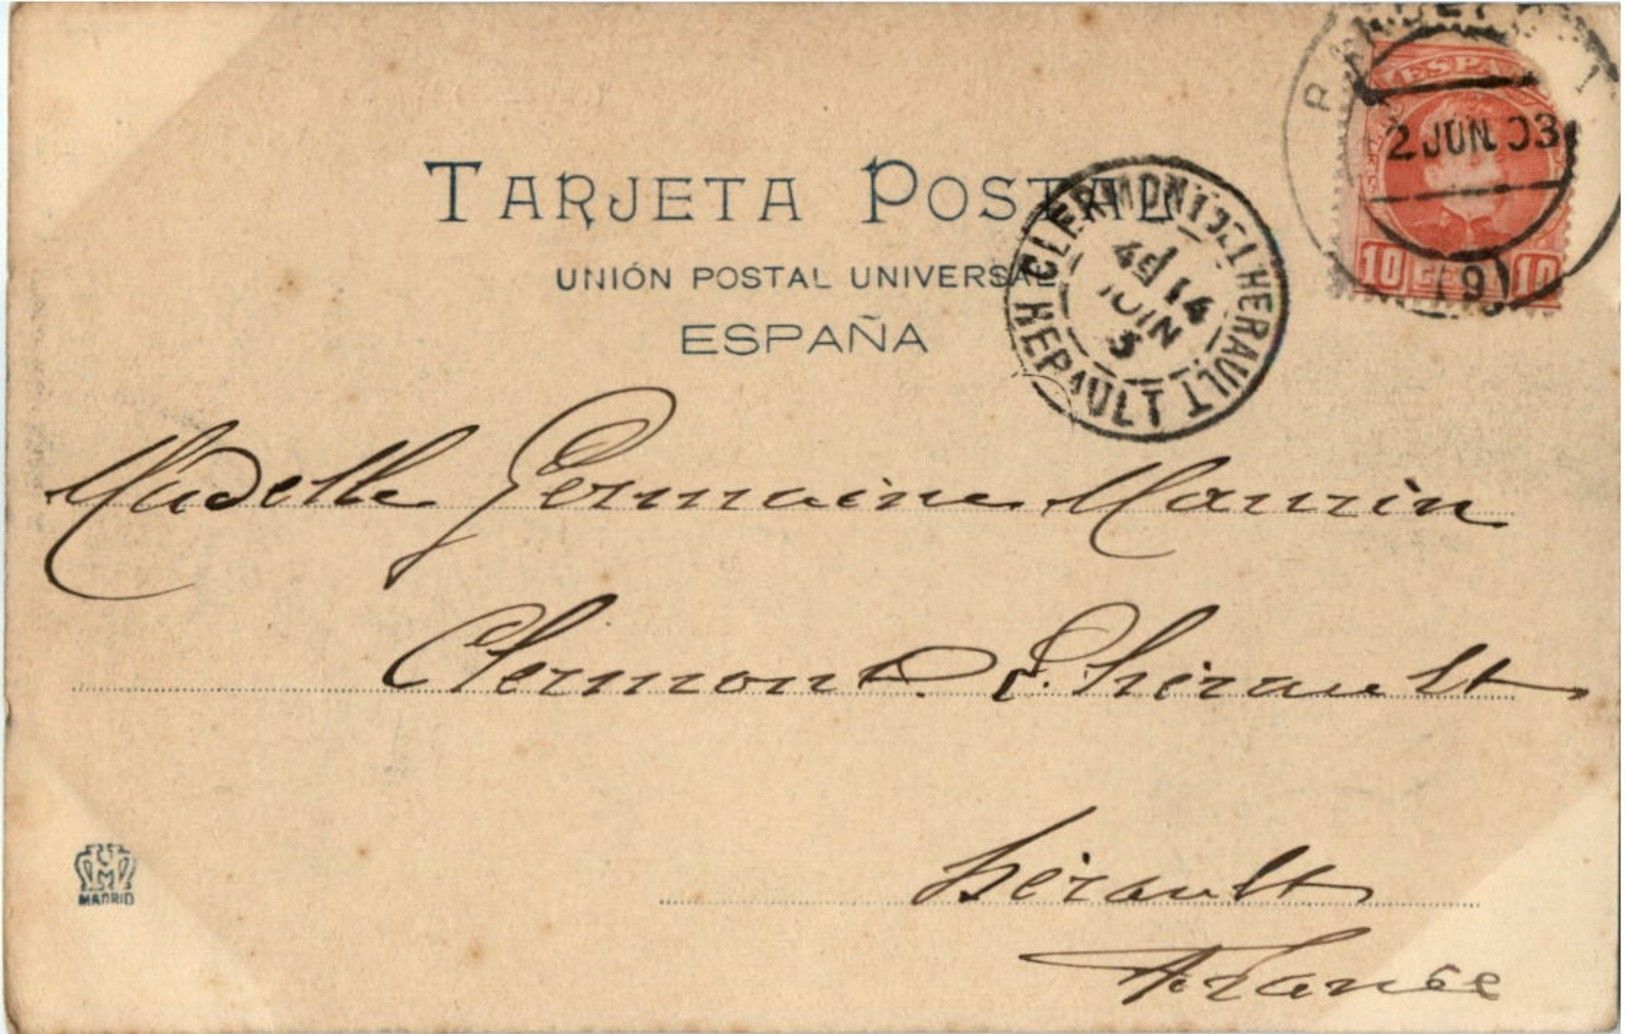 TARJETA POSTAL
UNIÓN POSTAL UNIVERSAL
ESPAÑA
CLERMONT DE L'HERAULT
4E 14
JUIN
3
HERAULT
ESPAÑA
2 JUN. 03
10 CENT 10
(19)
Madelle Germaine Maurin
Clermont. L'hérault
hérault
France
MADRID